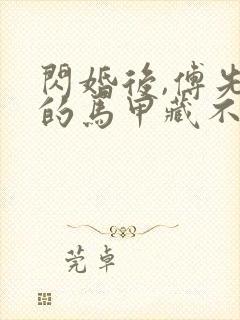 閃婚後,傅先
的馬甲藏不
莞卓